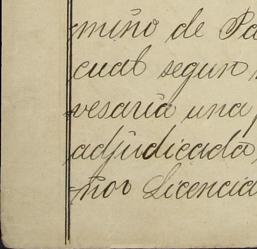 mino de Pa
cual segun
vesaria una
adjudicada
ñor Licencia